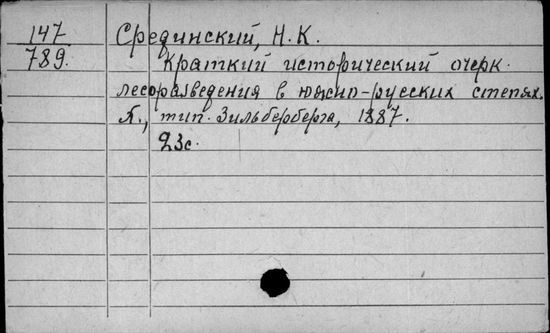 147 Срединский, Н.К.
789. Краткий исторический очерк
лесоразведения в южно-русских степях.
тип. Зильберберга, 1887.
23с.